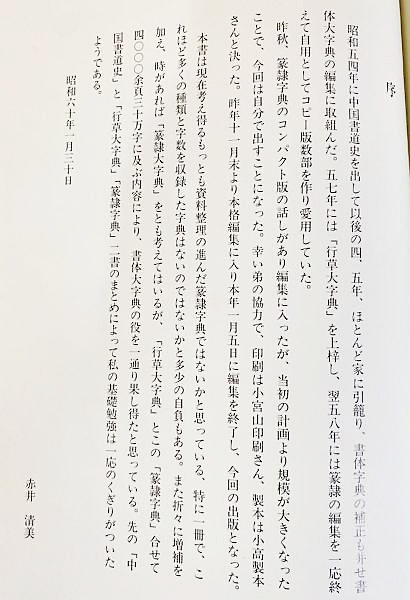 序
昭和五四年に中国書道史を出して以後の四、五年、ほとんど家に引籠り、書体字典の補正も幷せ書
体大字典の編集に取組んだ。五七年には「行草大字典」を上梓し、翌五八年には篆隷の編集を一応終
えて自用としてコピー版数部を作り愛用していた。
昨秋、篆隷字典のコンパクト版の話しがあり編集に入ったが、当初の計画より規模が大きくなった
ことで、今回は自分で出すことになった。幸い弟の協力で、印刷は小宮山印刷さん、製本は小高製本
さんと決った。昨年十一月末より本格編集に入り本年一月五日に編集を終了し、今回の出版となった。
本書は現在考え得るもっとも資料整理の進んだ篆隷字典ではないかと思っている、特に一冊で、こ
れほど多くの種類と字数を収録した字典はないのではないかと多少の自負もある。また折々に増補を
加え、時があれば「篆隷大字典」をとも考えてはいるが、「行草大字典」とこの「篆隷字典」合せて
四〇〇〇余頁三十万字に及ぶ内容により、書体大字典の役を一通り果し得たと思っている。先の「中
国書道史」と「行草大字典」「篆隷字典」二書のまとめによって私の基礎勉強は一応のくぎりがついた
ようである。
昭和六十年一月三十日
赤井 清美